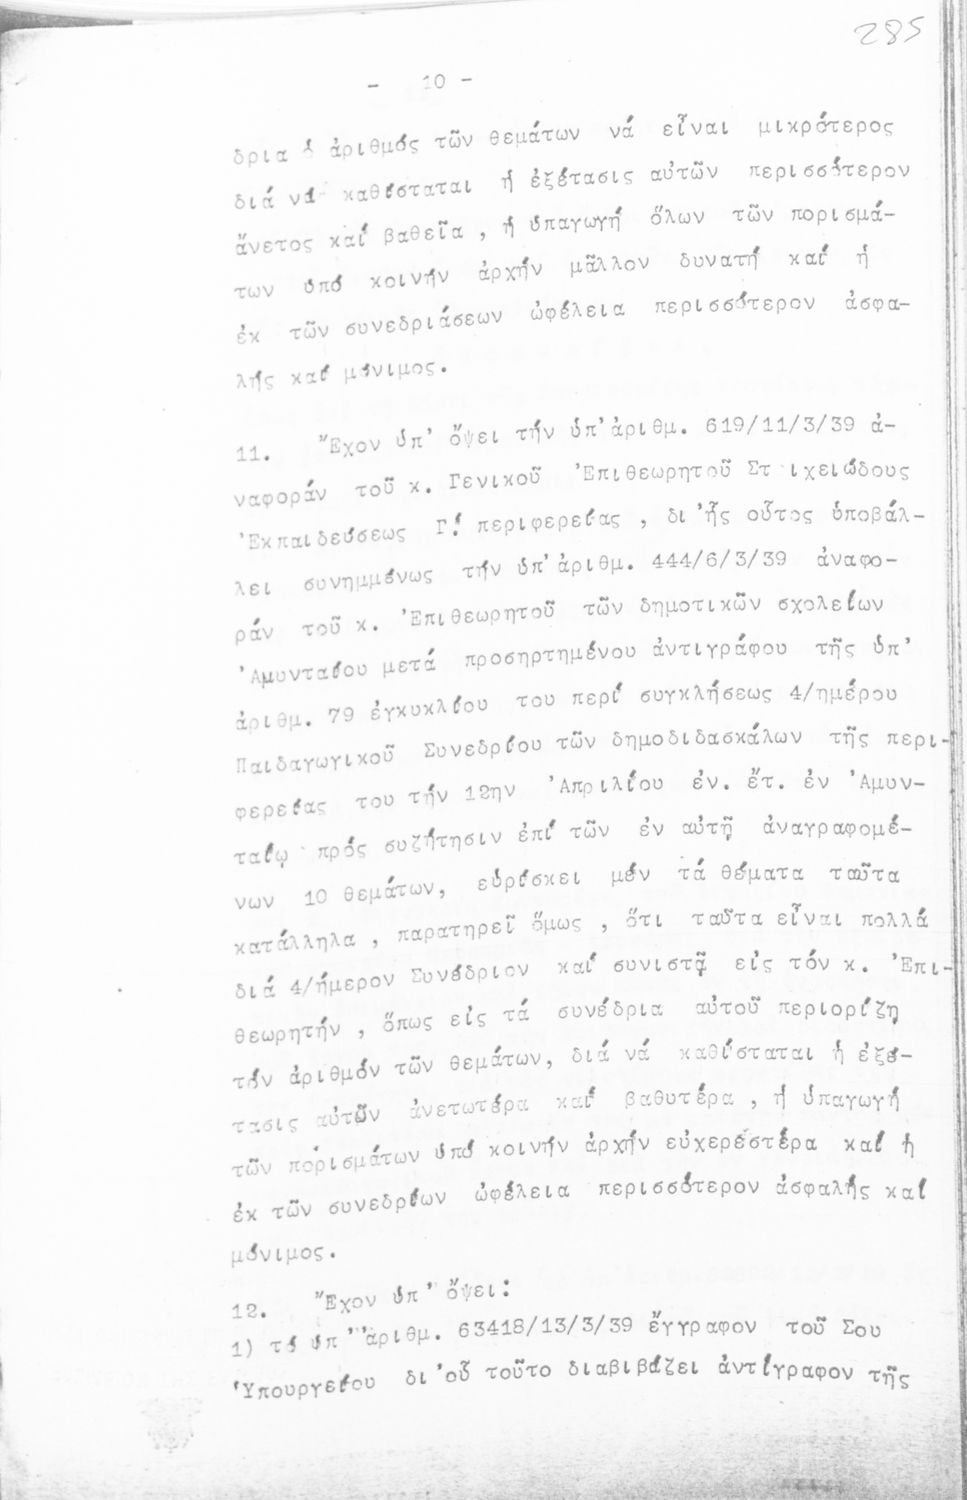 285
- 10 -
δρια ὁ ἀριθμός τῶν θεμάτων νά εἶναι μικρότερος
διά νά καθίσταται ἡ ἐξέτασις αὐτῶν περισσότερον
ἄνετος καί βαθεῖα , ἡ ὑπαγωγή ὅλων τῶν πορισμά-
των ὑπό κοινήν ἀρχήν μᾶλλον δυνατή καί ἡ
ἐκ τῶν συνεδριάσεων ὠφέλεια περισσότερον ἀσφα-
λής καί μόνιμος.
11. Ἔχον ὑπ' ὄψει τήν ὑπ' ἀριθμ. 619/11/3/39 ἀ-
ναφοράν τοῦ κ. Γενικοῦ Ἐπιθεωρητοῦ Στ ιχειώδους
Ἐκπαιδεύσεως Γ! περιφερείας , δι 'ἧς οὗτος ὑποβάλ-
λει συνημμένως τήν ὑπ' ἀριθμ. 444/6/3/39 ἀναφο-
ράν τοῦ κ. Ἐπιθεωρητοῦ τῶν δημοτικῶν σχολείων
Ἀμυνταίου μετά προσηρτημένου ἀντιγράφου τῆς ὑπ'
ἀριθμ. 79 ἐγκυκλίου του περί συγκλήσεως 4/ημέρου
Παιδαγωγικοῦ Συνεδρίου τῶν δημοδιδασκάλων τῆς περι-
φερείας του τήν 12ην Ἀπριλίου ἐν. ἔτ. ἐν Ἀμυν-
ταίῳ πρός συζήτησιν ἐπί τῶν ἐν αὐτῇ ἀναγραφομέ-
νων 10 θεμάτων, εὑρίσκει μέν τά θέματα ταῦτα
κατάλληλα , παρατηρεῖ ὅμως , ὅτι ταῦτα εἶναι πολλά
διά 4/ήμερον Συνέδριον καί συνιστᾷ εἰς τόν κ. Ἐπι-
θεωρητήν , ὅπως εἰς τά συνέδρια αὐτοῦ περιορίζῃ
τόν ἀριθμόν τῶν θεμάτων, διά νά καθίσταται ἡ ἐξέ-
τασις αὐτῶν ἀνετωτέρα καί βαθυτέρα , ἡ ὑπαγωγή
τῶν πορισμάτων ὑπό κοινήν ἀρχήν εὐχερεστέρα καί ἡ
ἐκ τῶν συνεδρίων ὠφέλεια περισσότερον ἀσφαλής καί
μόνιμος.
12. Ἔχον ὑπ' ὄψει:
1) τό ὑπ' ἀριθμ. 63418/13/3/39 ἔγγραφον τοῦ Σου
Ὑπουργείου δι 'οὗ τοῦτο διαβιβάζει ἀντίγραφον τῆς